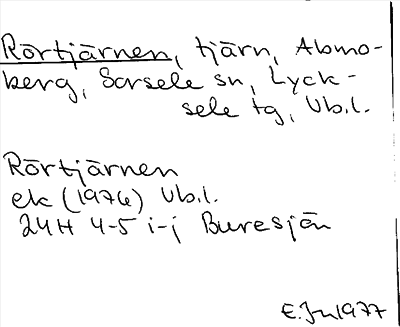 Rörtjärnen, tjärn, Abmo-
berg, Sorsele sn, Lyck-
sele tg, Vb.l.
Rörtjärnen
ek (1976) Vb.l.
24H 4-5 i-j Buresjön
E.Jn 1977